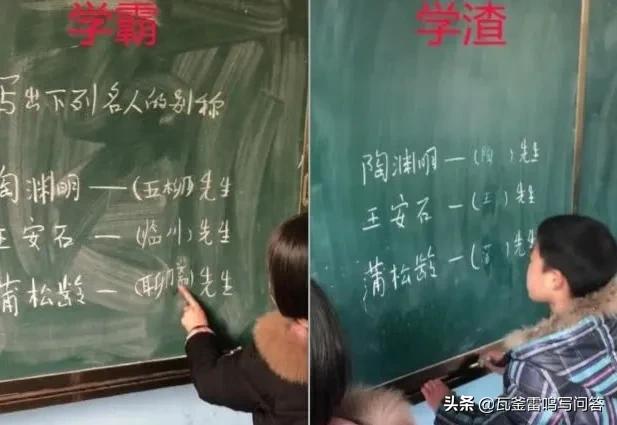 学霸
写出下列名人的别称
陶渊明——(五柳)先生
王安石—(临川)先生
蒲松龄—(聊斋)先生
学渣
陶渊明—(陶)先生
王安石—(王)先生
蒲松龄—(蒲)先生
头条 @瓦釜雷鸣写问答